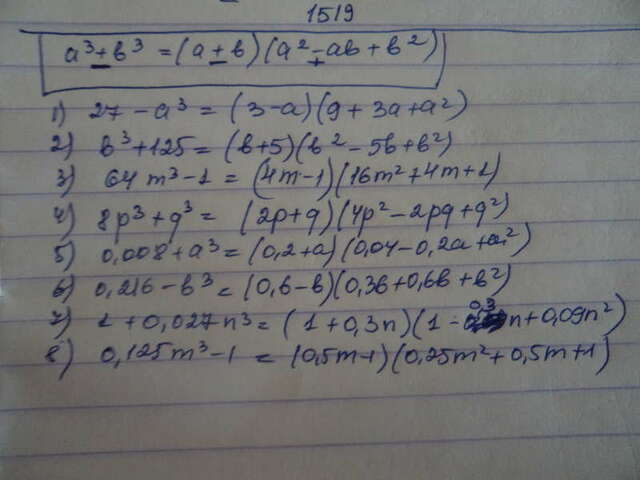 1519
a³±b³ = (a±b)(a²∓ab+b²)
1) 27-a³ = (3-a)(9+3a+a²)
2) b³+125=(b+5)(b²-5b+b²)
3) 64m³-1 = (4m-1)(16m²+4m+1)
4) 8p³+q³ = (2p+q)(4p²-2pq+q²)
5) 0,008+a³=(0,2+a)(0,04-0,2a+a²)
6) 0,216-b³=(0,6-b)(0,36+0,6b+b²)
7) 1+0,027n³=(1+0,3n)(1-0,3n+0,09n²)
8) 0,125m³-1 = (0,5m-1)(0,25m²+0,5m+1)